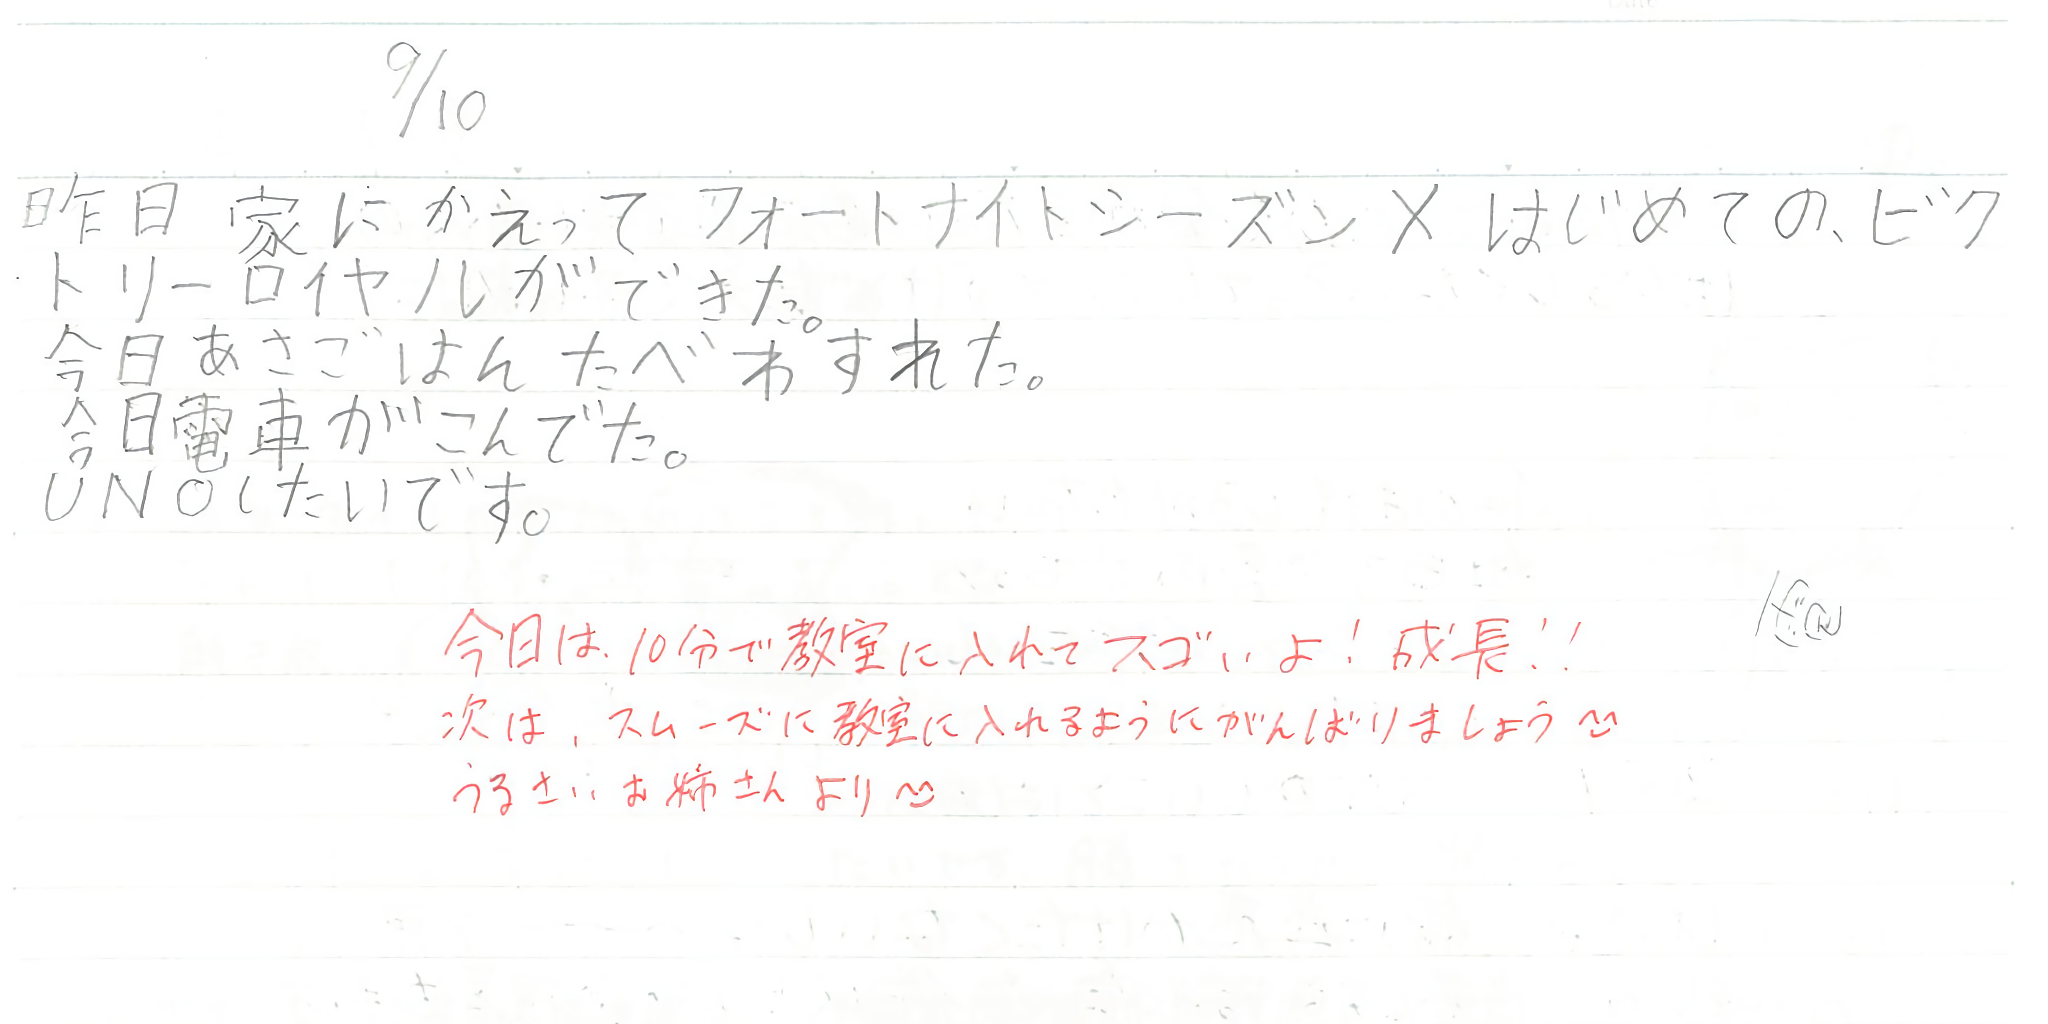 9/10
昨日 家にかえって フォートナイトシーズンX はじめての、ビク
トリーロイヤルができた。
今日あさごはんたべわすれた。
今日電車がこんでた。
UNOしたいです。
今日は、10分で教室に入れてスゴいよ！成長！！
次は、スムーズに教室に入れるようにがんばりましょう
うるさいお姉さんより